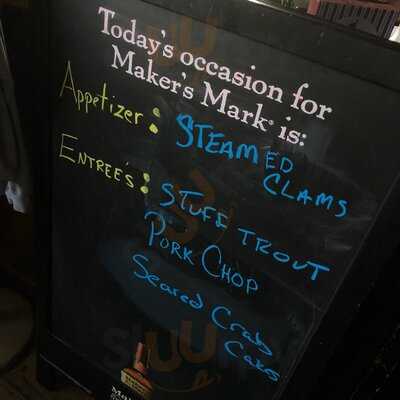 Today's occasion for
Maker's Mark® is:
Appetizer: STEAMED
CLAMS
ENTREE'S: STUFF TROUT
PORK CHOP
Seared Crab
Cakes